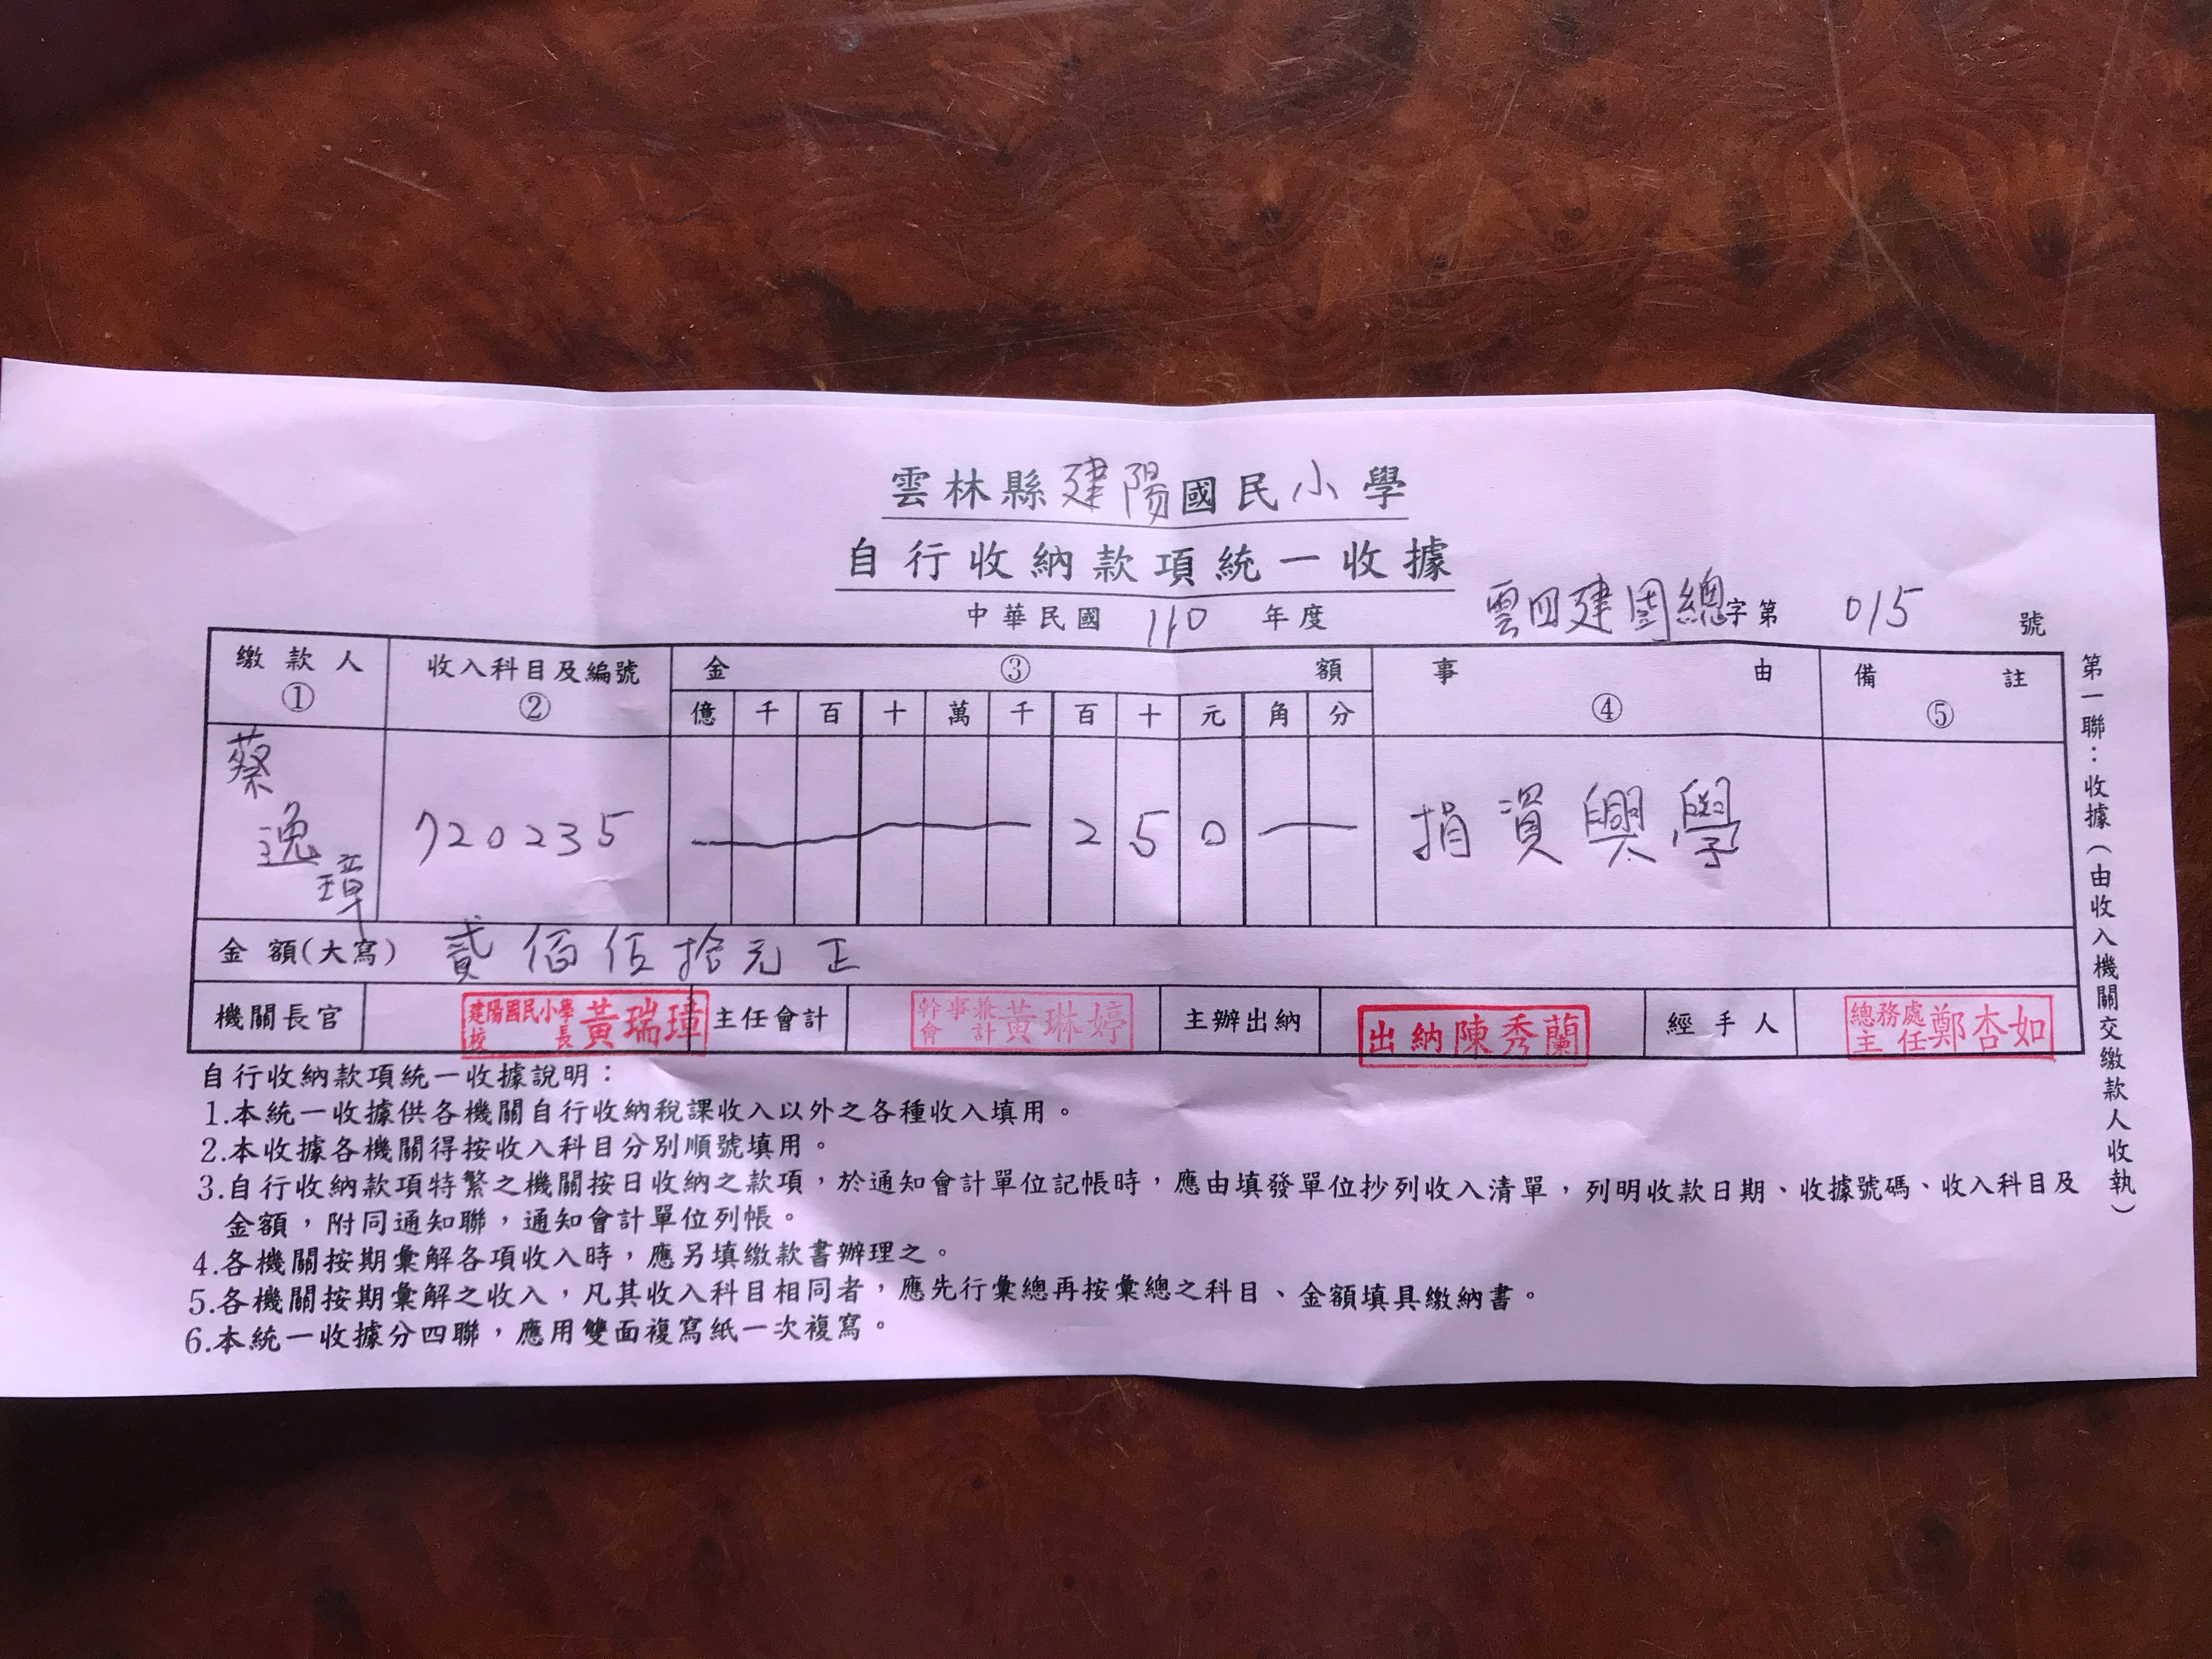 雲林縣建陽國民小學
自行收納款項統一收據
中華民國 110 年度
雲四建國總字第 015 號
繳款人 ①
收入科目及編號 ②
金 ③ 額
億 千 百 十 萬 千 百 十 元 角 分
事 由 ④
備 註 ⑤
蔡逸璋
720235
2 5 0
捐資興學
金額(大寫) 貳佰伍拾元正
機關長官 建陽國民小學校長 黃瑞璋 主任會計 幹事兼會計 黃琳婷 主辦出納 出納 陳秀蘭 經手人 總務處主任 鄭杏如
自行收納款項統一收據說明：
1.本統一收據供各機關自行收納稅課收入以外之各種收入填用。
2.本收據各機關得按收入科目分別順號填用。
3.自行收納款項特繁之機關按日收納之款項，於通知會計單位記帳時，應由填發單位抄列收入清單，列明收款日期、收據號碼、收入科目及
金額，附同通知聯，通知會計單位列帳。
4.各機關按期彙解各項收入時，應另填繳款書辦理之。
5.各機關按期彙解之收入，凡其收入科目相同者，應先行彙總再按彙總之科目、金額填具繳納書。
6.本統一收據分四聯，應用雙面複寫紙一次複寫。
第一聯：收據（由收入機關交繳款人收執）